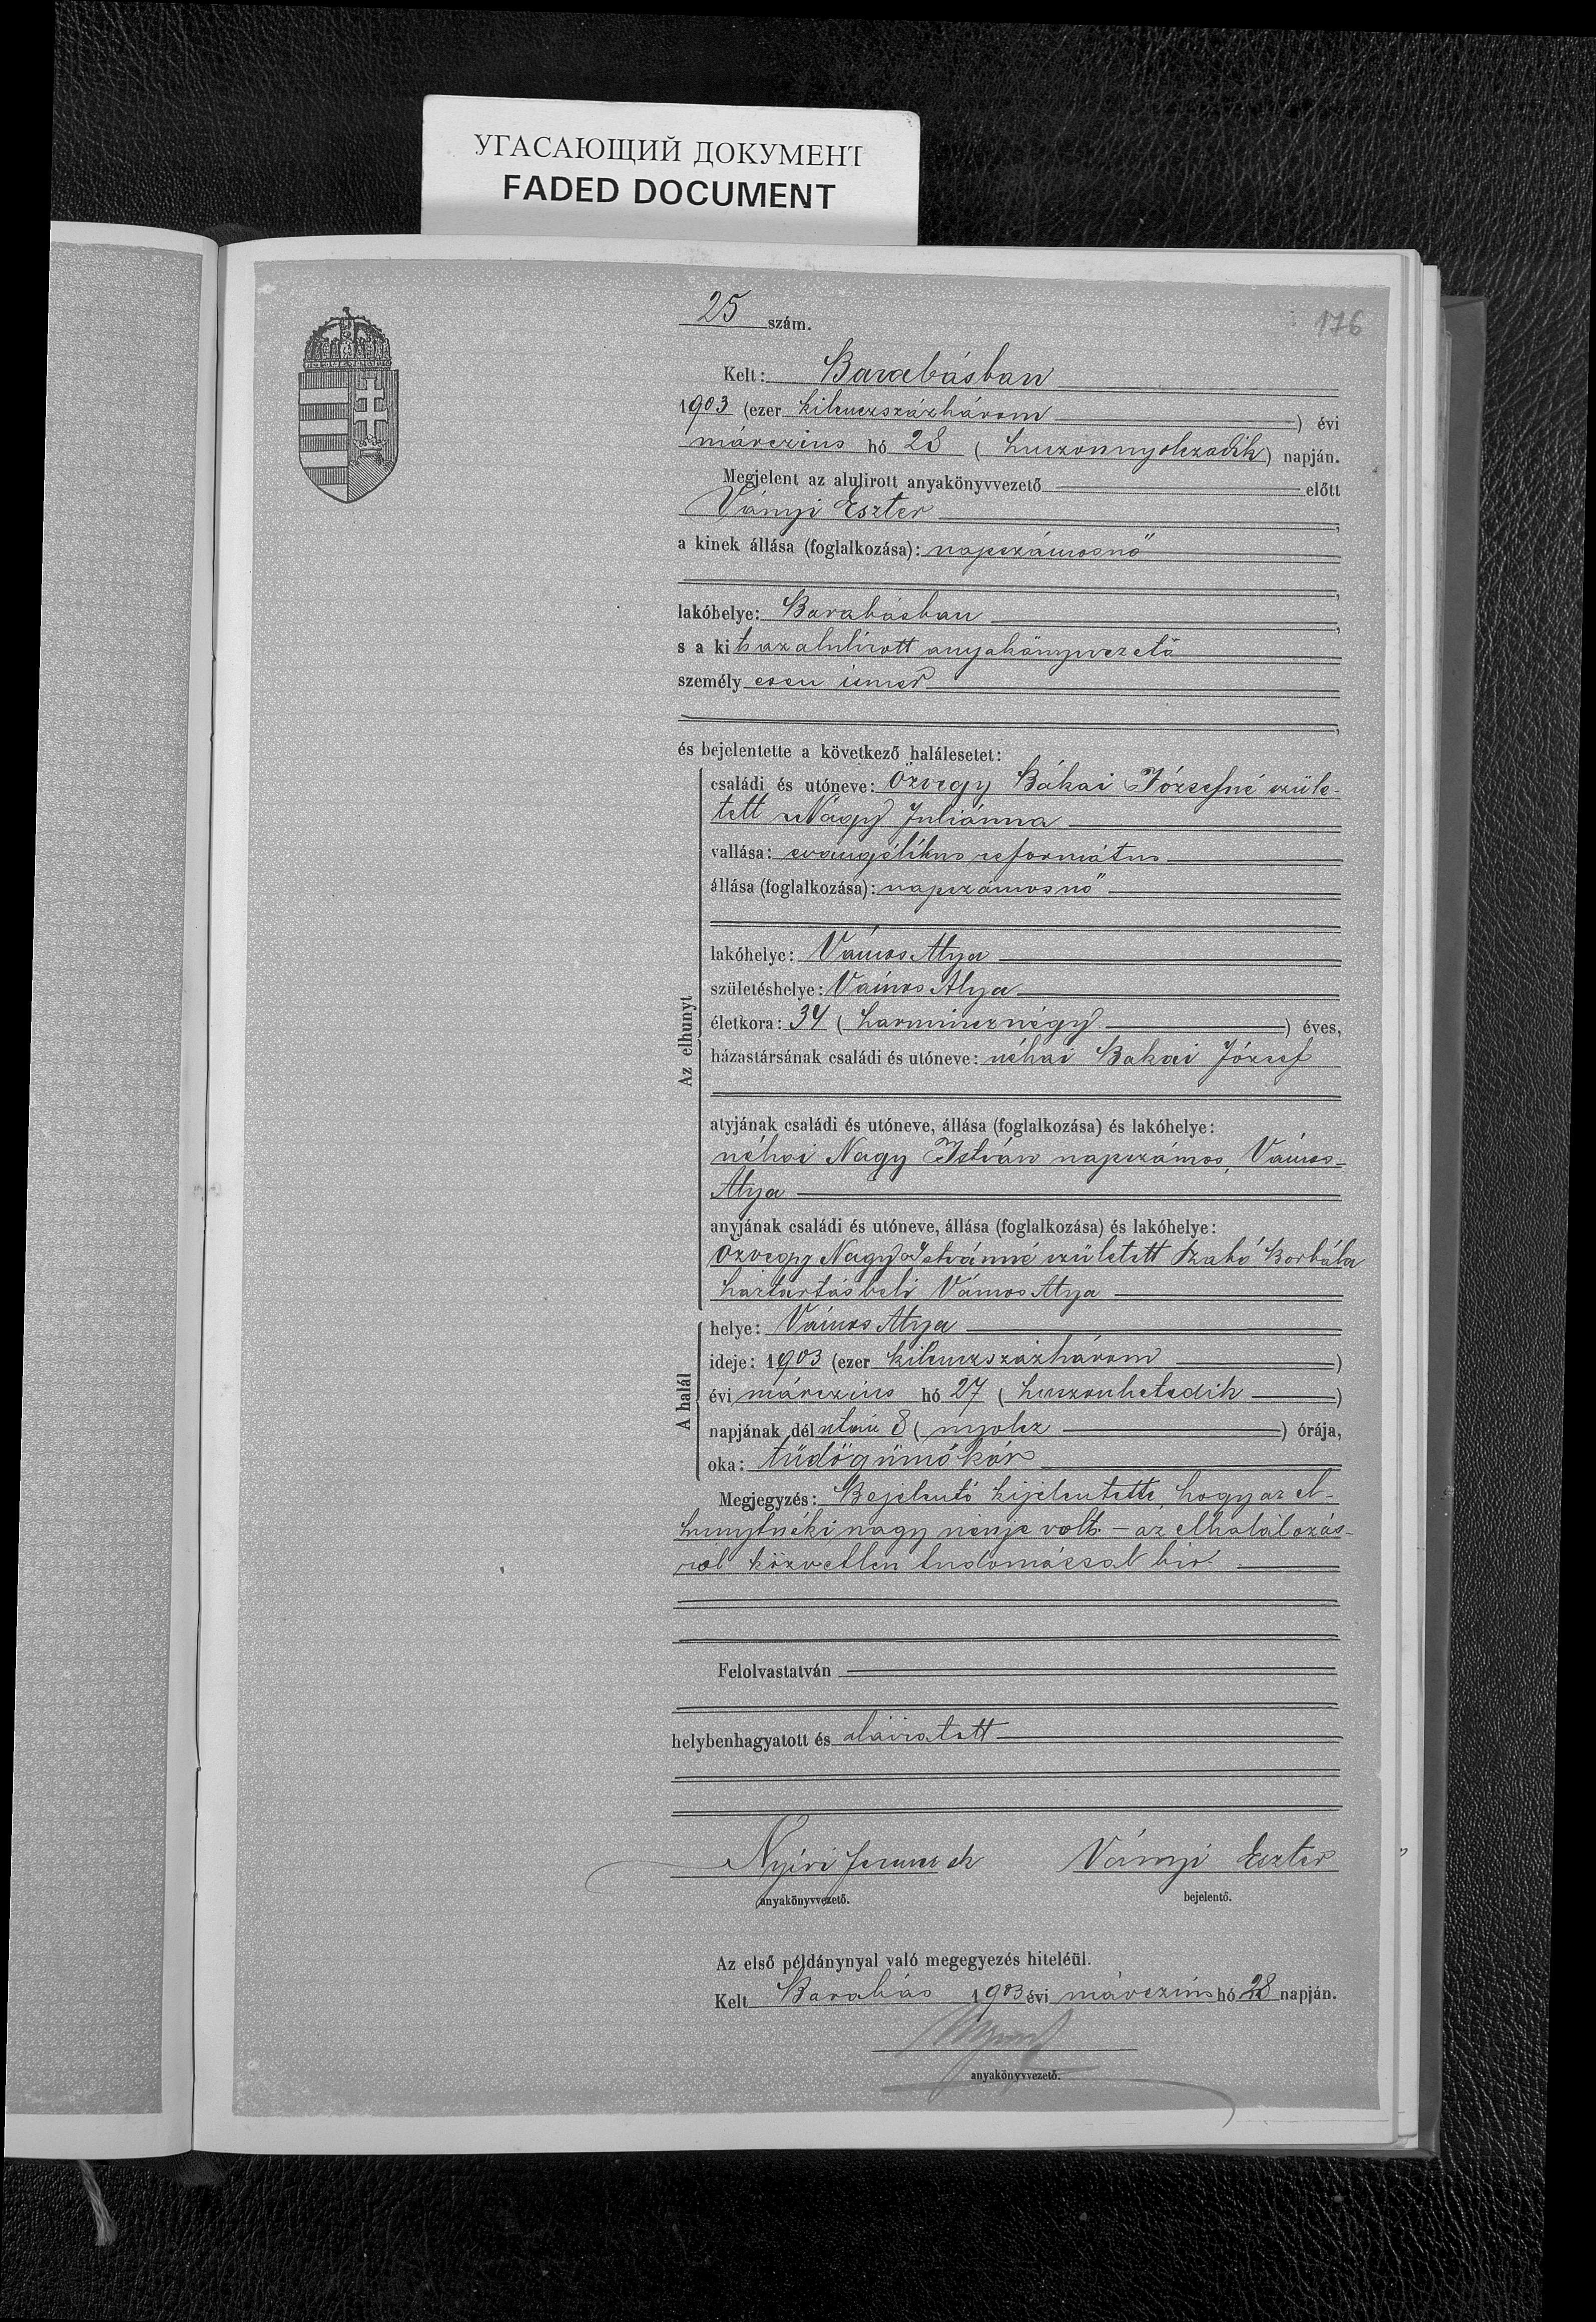 УГАСАЮЩИЙ ДОКУМЕНТ
FADED DOCUMENT
176
25 szám.
Kelt: Barabásban
1903 (ezer kilenczszázhárom ) évi
márczius hó 28 ( huszonnyolczadik ) napján.
Megjelent az alulirott anyakönyvvezető előtt
Ványi Eszter ,
a kinek állása (foglalkozása): napszámosnő
,
lakóhelye: Barabásban ,
s a kit az alulirott anyakönyvvezető
személyesen ismer
,
és bejelentette a következő halálesetet:
Az elhunyt
családi és utóneve: Özvegy Bákai Józsefné szüle-
tett Nagy Juliánna
vallása: evangélikus református
állása (foglalkozása): napszámosnő
lakóhelye: Vámos Atya
születéshelye: Vámos Atya
életkora: 34 ( harmincznégy ) éves,
házastársának családi és utóneve: néhai Bakai József
atyjának családi és utóneve, állása (foglalkozása) és lakóhelye:
néhai Nagy István napszámos, Vámos-
Atya
anyjának családi és utóneve, állása (foglalkozása) és lakóhelye:
Özvegy Nagy Istvánné született Szabó Borbála
háztartásbeli Vámos Atya
A halál
helye: Vámos Atya
ideje: 1903 (ezer kilenczszázhárom )
évi márczius hó 27 ( huszonhetedik )
napjának délután 8 ( nyolcz ) órája,
oka: tüdőgümőkór
Megjegyzés: Bejelentő kijelentette, hogy az el-
hunytnéki nagy nénje volt – az elhalálozás-
ról közvetlen tudomással bir.
Felolvastatván
helybenhagyatott és aláiratott
Nyiri Ványi Eszter
anyakönyvvezető. bejelentő.
Az első példánynyal való megegyezés hiteléül.
Kelt Barabás 1903 évi márczius hó 28 napján.
anyakönyvvezető.